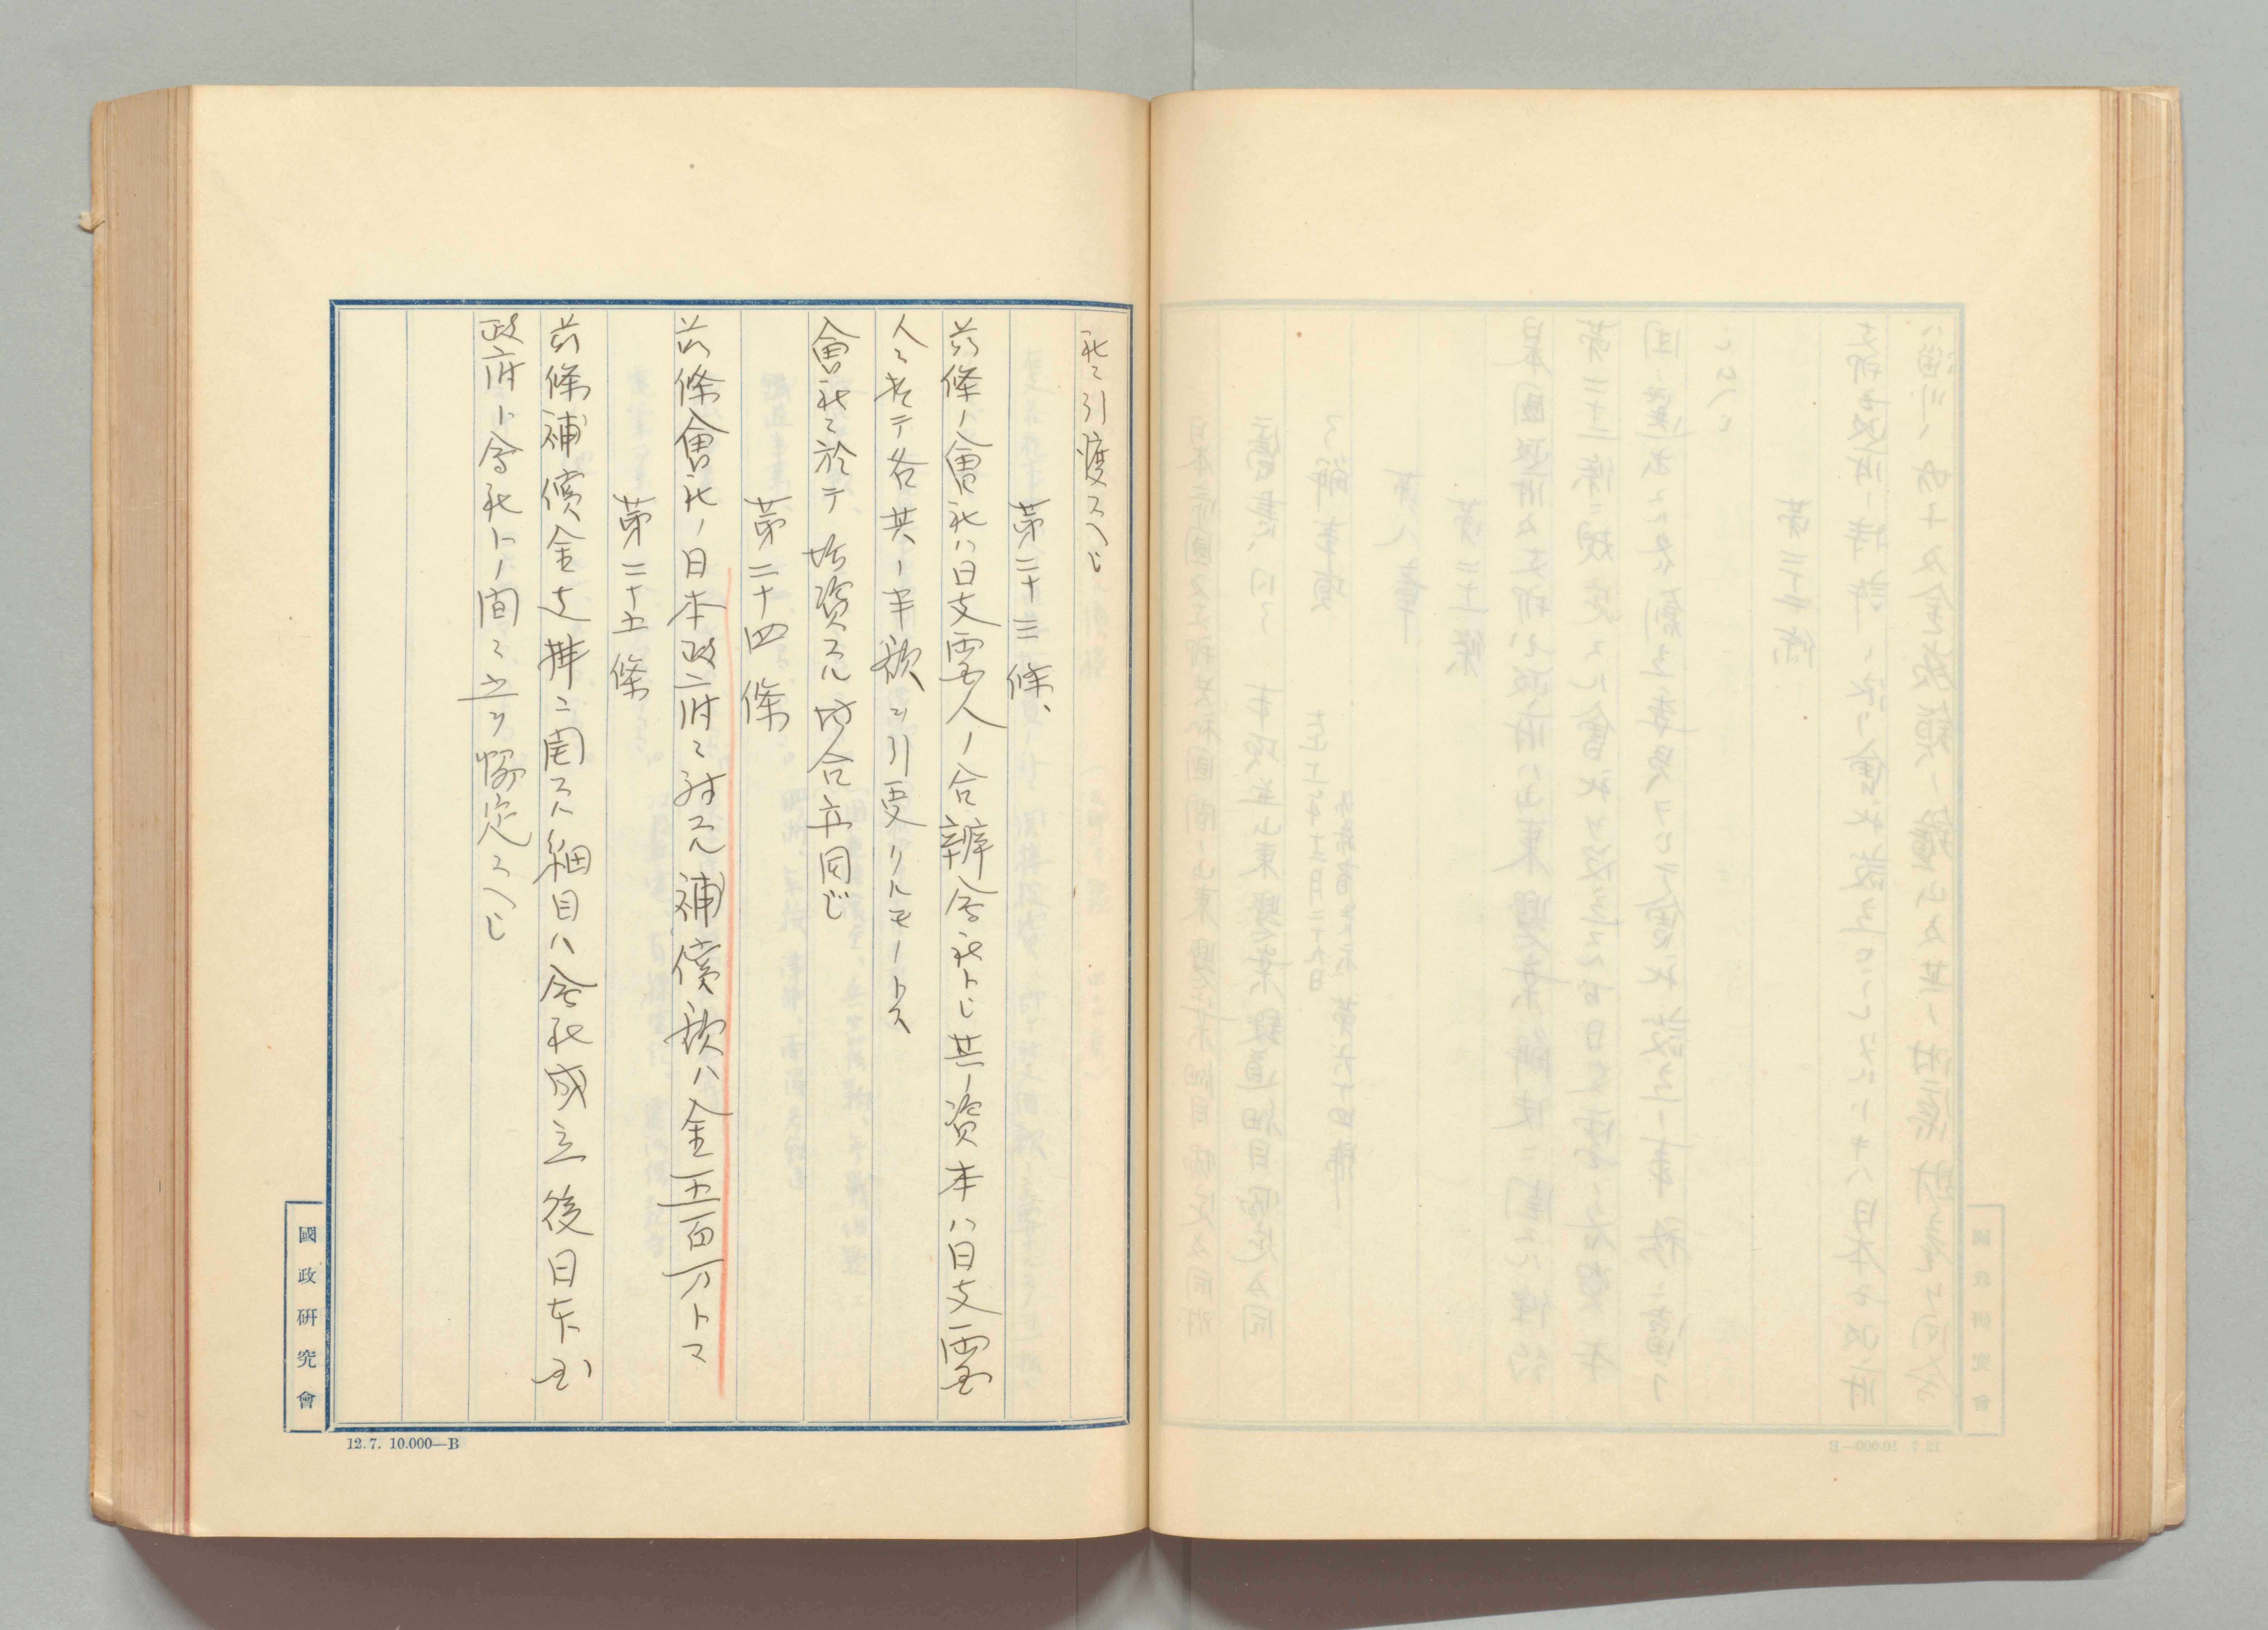 社ニ引渡スヘシ
第二十三條
前條ノ會社ハ日支両國人ノ合辦会社トシ其ノ資本ハ日支両國
人ニ於テ各其ノ半額ヲ引受クルモノトス
會社ニ於テ増資スル場合亦同シ
第二十四條
前條會社ノ日本政府ニ対スル補償額ハ金五百万トス
第二十五條
前條補償金支拂ニ関スル細目ハ会社成立後日本國
政府ト会社トノ間ニ之ヲ協定スヘシ
國政研究會
12.7. 10.000—B